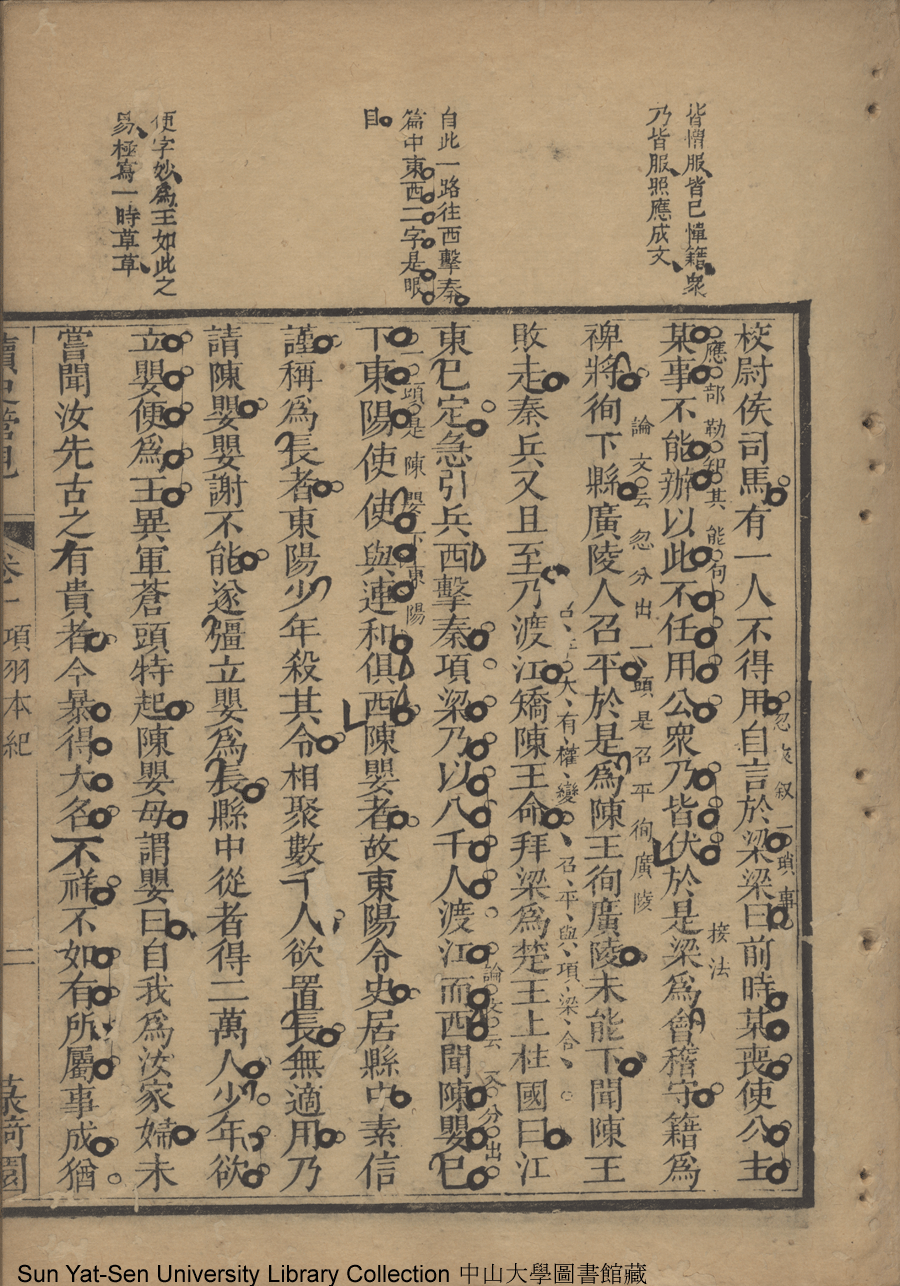 皆慴服皆已憚籍眾
乃皆服照應成文
自此一路往西擊秦
篇中東西二字是眼
目
便字妙為王如此之
易極寫一時草草
校尉侯司馬有一人不得用自言於梁梁曰前時某喪使公主
忽夾叙一瑣事
某事不能辦以此不任用公眾乃皆伏於是梁為會稽守籍為
應部勒知其能句
接法
裨將徇下縣廣陵人召平於是為陳王徇廣陵未能下聞陳王
論文云忽分出一頭是召平徇廣陵
敗走秦兵又且至乃渡江矯陳王命拜梁為楚王上柱國曰江
大有權變召平與項梁合
東已定急引兵西擊秦項梁乃以八千人渡江而西聞陳嬰已
論文云又分出
一頭是陳嬰下東陽
下東陽使使與連和俱西陳嬰者故東陽令史居縣中素信
謹稱為長者東陽少年殺其令相聚數千人欲置長無適用乃
請陳嬰嬰謝不能遂彊立嬰為長縣中從者得二萬人少年欲
立嬰便為王異軍蒼頭特起陳嬰母謂嬰曰自我為汝家婦未
嘗聞汝先古之有貴者今暴得大名不祥不如有所屬事成猶
卷一 項羽本紀
二
Sun Yat-Sen University Library Collection 中山大學圖書館藏